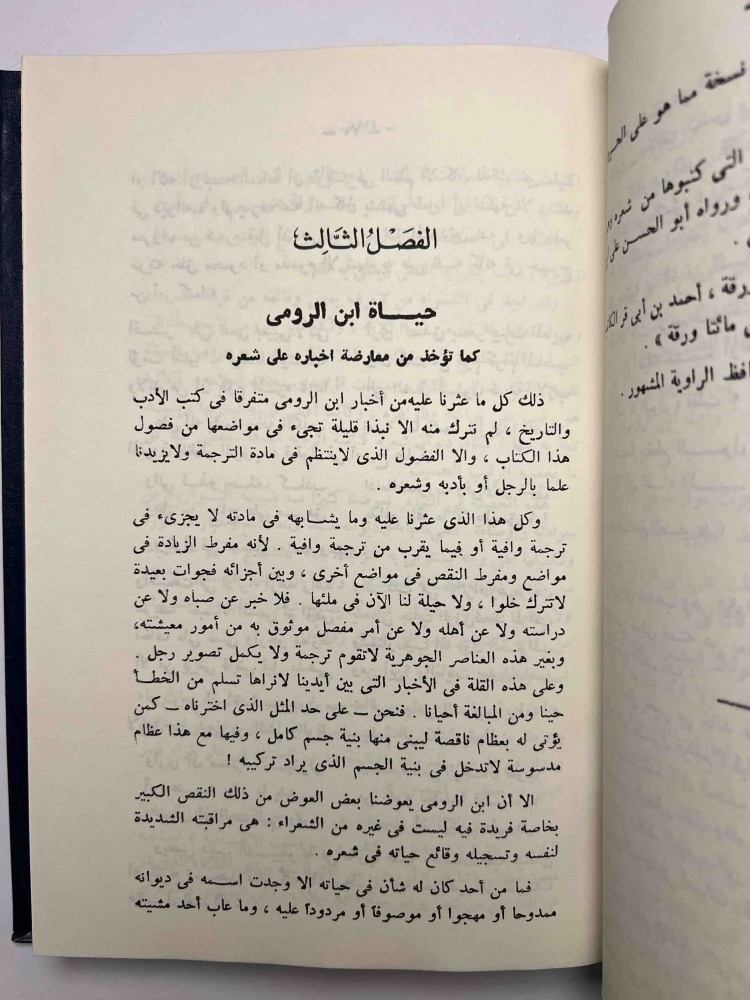 الفصل الثالث
حيـــاة ابن الرومى
كما تؤخذ من معارضة اخباره على شعره
ذلك كل ما عثرنا عليه من أخبار ابن الرومى متفرقا فى كتب الأدب
والتاريخ ، لم نترك منه الا نبذا قليلة تجىء فى مواضعها من فصول
هذا الكتاب ، والا الفضول الذى لاينتظم فى مادة الترجمة ولايزيدنا
علما بالرجل أو بأدبه وشعره .
وكل هذا الذى عثرنا عليه وما يشـابهه فى مادته لا يجزىء فى
ترجمة وافية أو فيما يقرب من ترجمة وافية . لأنه مفرط الزيادة فى
مواضع ومفرط النقص فى مواضع أخرى ، وبين أجزائه فجوات بعيدة
لاتترك خلوا ، ولا حيلة لنا الآن فى ملئها . فلا خبر عن صباه ولا عن
دراسته ولا عن أهله ولا عن أمر مفصل موثوق به من أمور معيشته،
وبغير هذه العناصر الجوهرية لاتقوم ترجمة ولا يكمل تصوير رجل .
وعلى هذه القلة فى الأخبار التى بين أيدينا لانراها تسلم من الخطـأ
حينا ومن المبالغة أحيانا . فنحن — على حد المثل الذى اخترناه — كمن
يؤتى له بعظام ناقصة ليبنى منها بنية جسم كامل ، وفيها مع هذا عظام
مدسوسة لاتدخل فى بنية الجسم الذى يراد تركيبه !
الا أن ابن الرومى يعوضنا بعض العوض من ذلك النقص الكبير
بخاصة فريدة فيه ليست فى غيره من الشعراء : هى مراقبته الشديدة
لنفسه وتسجيله وقائع حياته فى شعره .
فما من أحد كان له شأن فى حياته الا وجدت اسـمه فى ديوانه
ممدوحا أو مهجوا أو موصوفاً أو مردوداً عليه ، وما عاب أحد مشيته
نسخة مما هو على
التى كتبوها من شعره
ورواه أبو الحسن على
ورقة ، أحمد بن أبى قر
مائتا ورقة » .
الراوية المشهور .